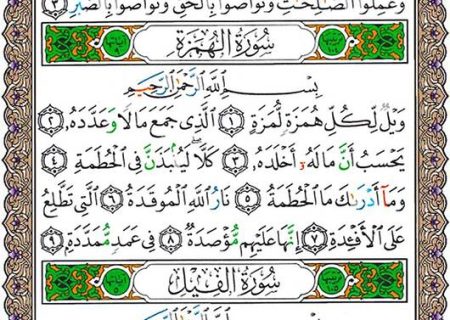 وَعَمِلُوا۟ ٱلصَّٰلِحَٰتِ وَتَوَاصَوْا۟ بِٱلْحَقِّ وَتَوَاصَوْا۟ بِٱلصَّبْرِ ٣
سُورَةُ الهُمَزَةِ
بِسْمِ ٱللَّهِ ٱلرَّحْمَٰنِ ٱلرَّحِيمِ
وَيْلٌ لِّكُلِّ هُمَزَةٍ لُّمَزَةٍ ١ ٱلَّذِى جَمَعَ مَالًا وَعَدَّدَهُۥ ٢
يَحْسَبُ أَنَّ مَالَهُۥٓ أَخْلَدَهُۥ ٣ كَلَّا ۖ لَيُنۢبَذَنَّ فِى ٱلْحُطَمَةِ ٤
وَمَآ أَدْرَىٰكَ مَا ٱلْحُطَمَةُ ٥ نَارُ ٱللَّهِ ٱلْمُوقَدَةُ ٦ ٱلَّتِى تَطَّلِعُ
عَلَى ٱلْأَفْـِٔدَةِ ٧ إِنَّهَا عَلَيْهِم مُّؤْصَدَةٌ ٨ فِى عَمَدٍ مُّمَدَّدَةٍۭ ٩
سُورَةُ الفِيلِ